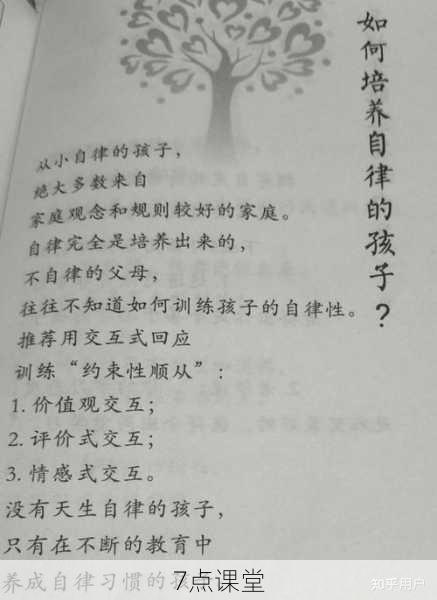 如何培养自律的孩子？
从小自律的孩子，
绝大多数来自
家庭观念和规则较好的家庭。
自律完全是培养出来的，
不自律的父母，
往往不知道如何训练孩子的自律性。
推荐用交互式回应
训练“约束性顺从”：
1. 价值观交互；
2. 评价式交互；
3. 情感式交互。
没有天生自律的孩子，
只有在不断的教育中
养成自律习惯的孩
7点课堂
知乎用户